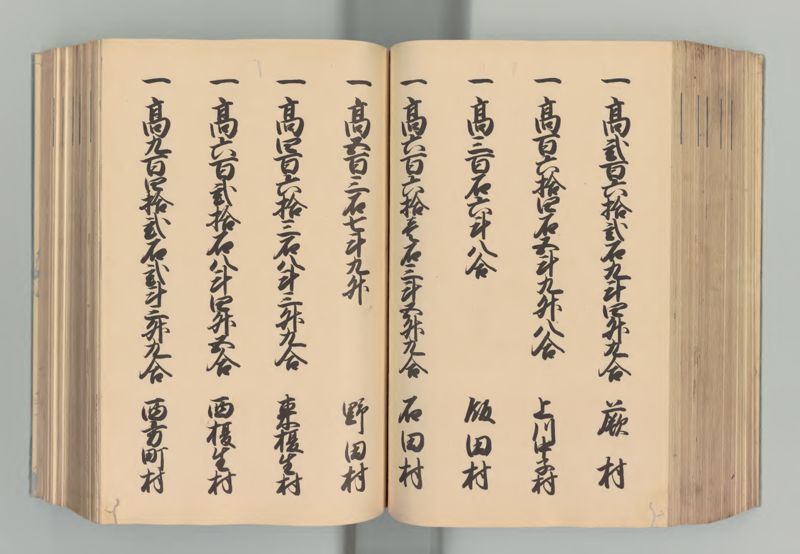 一 高弐百六拾弐石九斗四升九合 蕨村
一 高百六拾四石五斗九升八合 上川去村
一 高三百石六斗八合 飯田村
一 高六百六拾壱石三斗五升九合 石田村
一 高五百三石七斗九升 野田村
一 高四百六拾三石八斗三升九合 東榎生村
一 高六百弐拾石八斗四升五合 西榎生村
一 高九百四拾弐石弐斗三升九合 西方町村